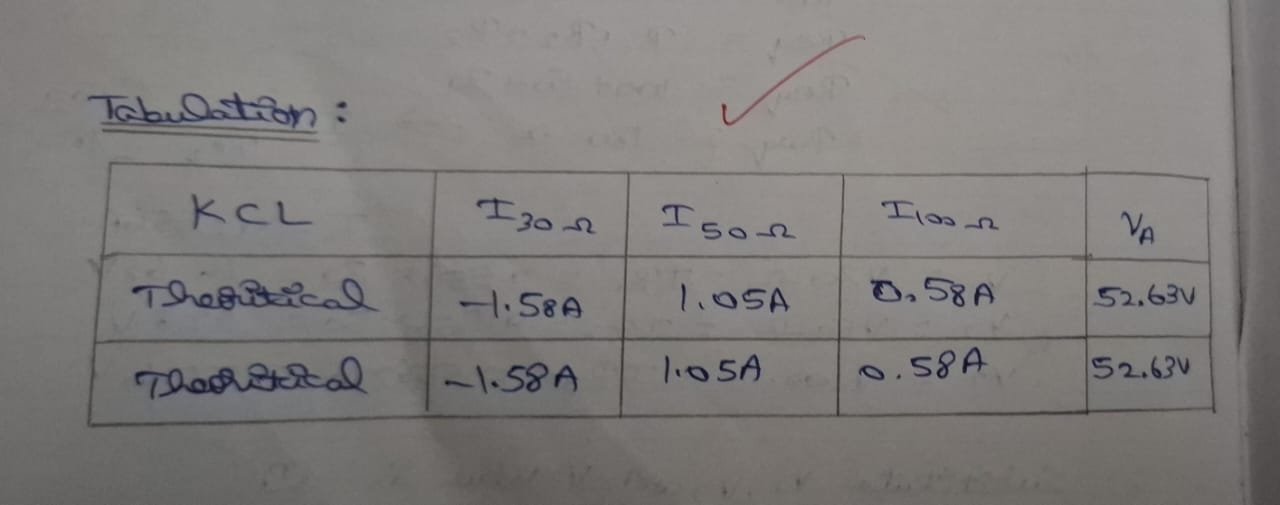 Tabulation :
KCL I30Ω I50Ω I100Ω VA
Theoritical -1.58A 1.05A 0.58A 52.63V
Theoritical -1.58A 1.05A 0.58A 52.63V